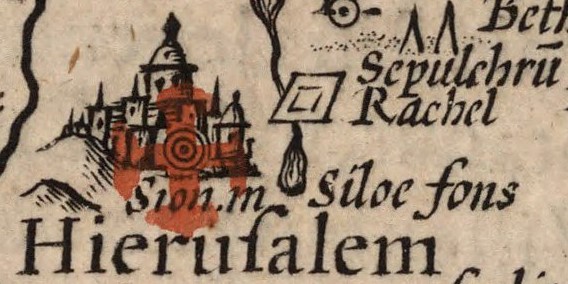 Beth
Sepulchrū
Rachel
Sion.m Siloe fons
Hieruſalem